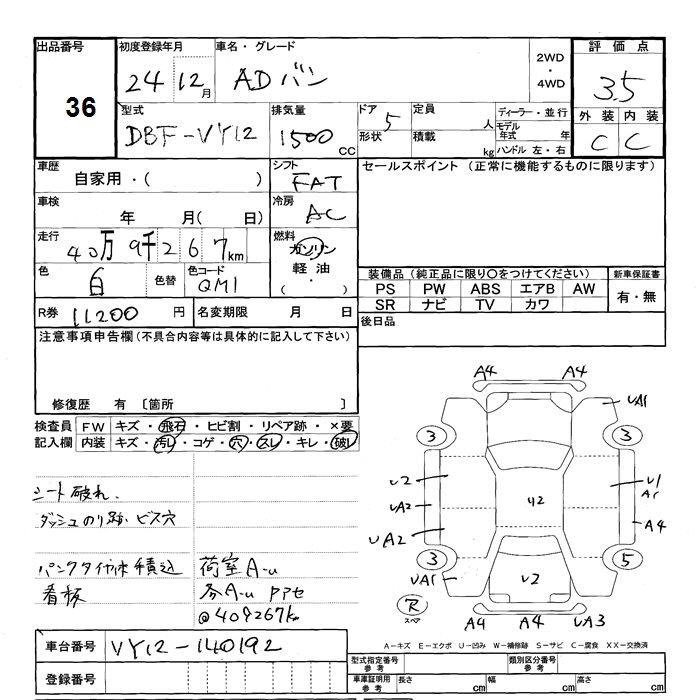 出品番号
36
初度登録年月
24 12月
車名・グレード
ADバン
2WD
・
4WD
評価点
3.5
型式
DBF-VY12
排気量
1500 CC
ドア 5
形状
定員 人
積載 kg
ディーラー・並行
モデル年式 年
ハンドル 左・右
外装 内装
C C
車歴
自家用・( )
シフト
FAT
セールスポイント(正常に機能するものに限ります)
車検
年 月( 日)
冷房
AC
走行
40万9千267km
燃料
ガソリン
軽油
( ・ )
色
白
色替
色コード
QM1
装備品(純正品に限り○をつけてください)
新車保証書
PS PW ABS エアB AW
SR ナビ TV カワ
有・無
R券 11200 円
名変期限 月 日
後日品
注意事項申告欄(不具合内容等は具体的に記入して下さい)
修復歴 有 〔箇所 〕
検査員記入欄
FW キズ・飛石・ヒビ割・リペア跡・×要
内装 キズ・汚レ・コゲ・穴・スレ・キレ・破レ
シート破れ、
ダッシュのり跡、ビス穴
パンクタイヤ 積込
看板
荷室A-u
@409267k
A4 A4
UA1
3 3
U2
U1
UA2
U2
A4
UA2
3 5
UA1
U2
R
スペア
A4 A4 UA3
A-キズ E-エクボ U-凹み W-補修跡 S-サビ C-腐食 XX-交換済
車台番号 VY12-140192
登録番号
型式指定番号 参考
類別区分番号 参考
車庫証明用 参考
長さ cm 幅 cm 高さ cm